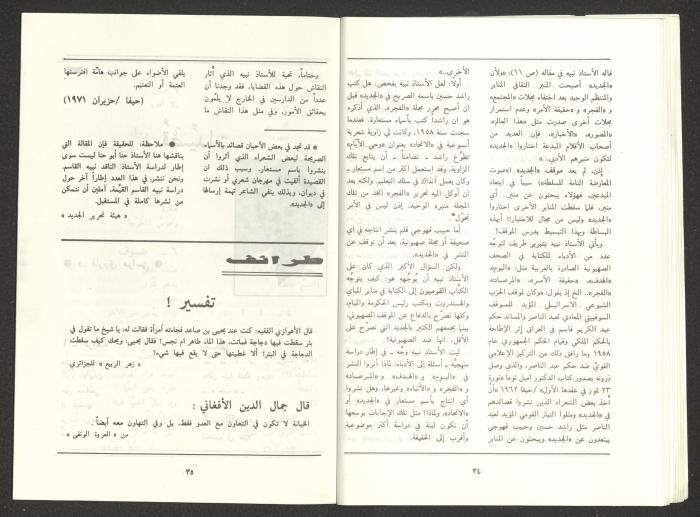 قاله الأستاذ نبيه في مقاله (ص ١١): «ولأن
«الجديد» أصبحت المنبر الثقافي المثابر
والمنتظم الوحيد بعد اختفاء مجلات «المجتمع»
و «الفجر» و «حقيقة الأمر» وعدم استمرار
مجلات أخرى صدرت مثل «هذا العالم»،
«المصور»، «الأخبار»، فإن العديد من
أصحاب الأقلام المبدعة اختاروا «الجديد»
لتكون منبرهم الأدبي..»
إذن، لم يعد موقف «الجديد» («صوت
المعارضة التامة للسلطة») سبباً في ابتعاد
المبدعين، فهؤلاء يبحثون عن منبر.. أي
منبر، فلما سقطت المنابر الأخرى اختاروا
«الجديد» وليس من مجال للاختيار!! أبهذه
البساطة وبهذا التبسيط يدرس الموقف؟
ويأتي الأستاذ نبيه بتبرير طريف لتوجّه
عدد من الأدباء للكتابة في الصحف
الصهيونية الصادرة بالعربية مثل: «اليوم»،
«حقيقة الأمر»، «المرصاد»،
«الفجر».. الخ إذ يقول: «وكان لموقف الحزب
الشيوعي الاسرائيلي المؤيد للموقف
السوفييتي المعادي لعبد الناصر والمساند حكم
عبد الكريم قاسم في العراق إثر الإطاحة
بالحكم الملكي وقيام الحكم الجمهوري عام
١٩٥٨ وما رافق ذلك من التركيز الإعلامي
القويّ ضد حكم عبد الناصر، والذي وصل
ذروته بصدور كتاب الدكتور اميل توما «ثورة
٢٣ تموز في عقدها الأول» /حيفا ١٩٦٢ أن
أخذ بعض الشعراء الذين نشروا قصائدهم
في «الجديد» ومثلوا التيار القومي المؤيد لعبد
الناصر مثل راشد حسين وحبيب قهوجي
يبتعدون عن «الجديد» ويبحثون عن المنابر
الأخرى..»
أولاً: لعل الأستاذ نبيه يفحص: هل كتب
راشد حسين باسمه الصريح في «الجديد» قبل
ان أصبح محرر مجلة «الفجر». الذي أذكره
هو ان راشداً كتب بأسماء مستعارة. فعندما
سجنت سنة ١٩٥٨، وكانت لي زاوية شعرية
أسبوعية في «الاتحاد» بعنوان «وحي الأيام»
تطوّع راشد - تضامناً - أن يتابع تلك
الزاوية، وقد استعمل أكثر من اسم مستعار ـ
وكان يعمل آنذاك في سلك التعليم. ولكنه بعد
أن أوكل اليه تحرير «الفجر» اتخذ من تلك
المجلة منبره الوحيد. إذن ليس في الأمر
تحوّل*
أما حبيب قهوجي فلم ينشر انتاجه في أي
صحيفة أو مجلة صهيونية، بعد أن توقف عن
النشر في «الجديد».
ولكن السؤال الأكبر الذي كان على
الأستاذ نبيه أن يوجهه هو: كيف يتوجّه
الكتّاب القوميون إلى الكتابة في منابر المباي
والهستدروت ومكتب رئيس الحكومة والمبام،
وكلها تصرّح بالدفاع عن الموقف الصهيوني،
بينما يجمعهم الكثير بالجديد التي تصرّح على
الأقل، انها ضد الصهيونية؟
ليت الأستاذ نبيه وجّه ـ في إطار دراسة
منهجيّة ـ أسئلة إلى الأدباء: لماذا أثروا النشر
في «اليوم» و «الهدف» و «المرصاد»
و «الفجر» و «الأنباء» وغيرها، وهل نشروا
أي انتاج بأسم مستعار في «الجديد» أو
«الاتحاد»، ولماذا؟ مثل تلك الإجابات بوسعها
أن تكون لبنة في دراسة أكثر موضوعية
وأقرب إلى الحقيقة.
٣٤
وختاماً، تحية للأستاذ نبيه الذي أثار
النقاش حول هذه القضايا، فقد وجدنا أن
عدداً من الدارسين في الخارج لا يلمّون
بحقائق الأمور. وفي مثل هذا النقاش ما
يلقي الأضواء على جوانب هامّة افترستها
العتمة أو التعتيم.
(حيفا /حزيران ١٩٧١)
* قد تجد في بعض الأحيان قصائد بالأسماء
الصريحة لبعض الشعراء الذي آثروا أن
ينشروا باسم مستعار. وسبب ذلك ان
القصيدة ألقيت في مهرجان شعري أو نشرت
في ديوان، وبذلك ينفي الشاعر تهمة إرسالها
إلى «الجديد».
* ملاحظة: للحقيقة فإن المقالة التي
يناقشها هنا الأستاذ حنا أبو حنا ليست سوى
إطار لدراسة الأستاذ الناقد نبيه القاسم.
ونحن ننشر، في هذا العدد إطاراً آخر حول
دراسة نبيه القاسم القيّمة، آملين أن نتمكن
من نشرها كاملة في المستقبل.
« هيئة تحرير الجديد »
طرائف
تفسير !
قال الأهوازي الفقيه: كنت عند يحيى بن صاعد فجاءته امرأة فقالت له: يا شيخ ما تقول في
بئر سقطت فيها دجاجة فماتت، هذا الماء طاهر ام نجس؟ فقال يحيى: ويحك كيف سقطت
الدجاجة في البئر؟ ألا غطيتها حتى لا يقع فيها شيء؟
« زهر الربيع » للجزائري
قال جمال الدين الأفغاني :
الخيانة لا تكون في التعاون مع العدو فقط، بل وفي التهاون معه أيضاً.
من « العروة الوثقى »
٣٥